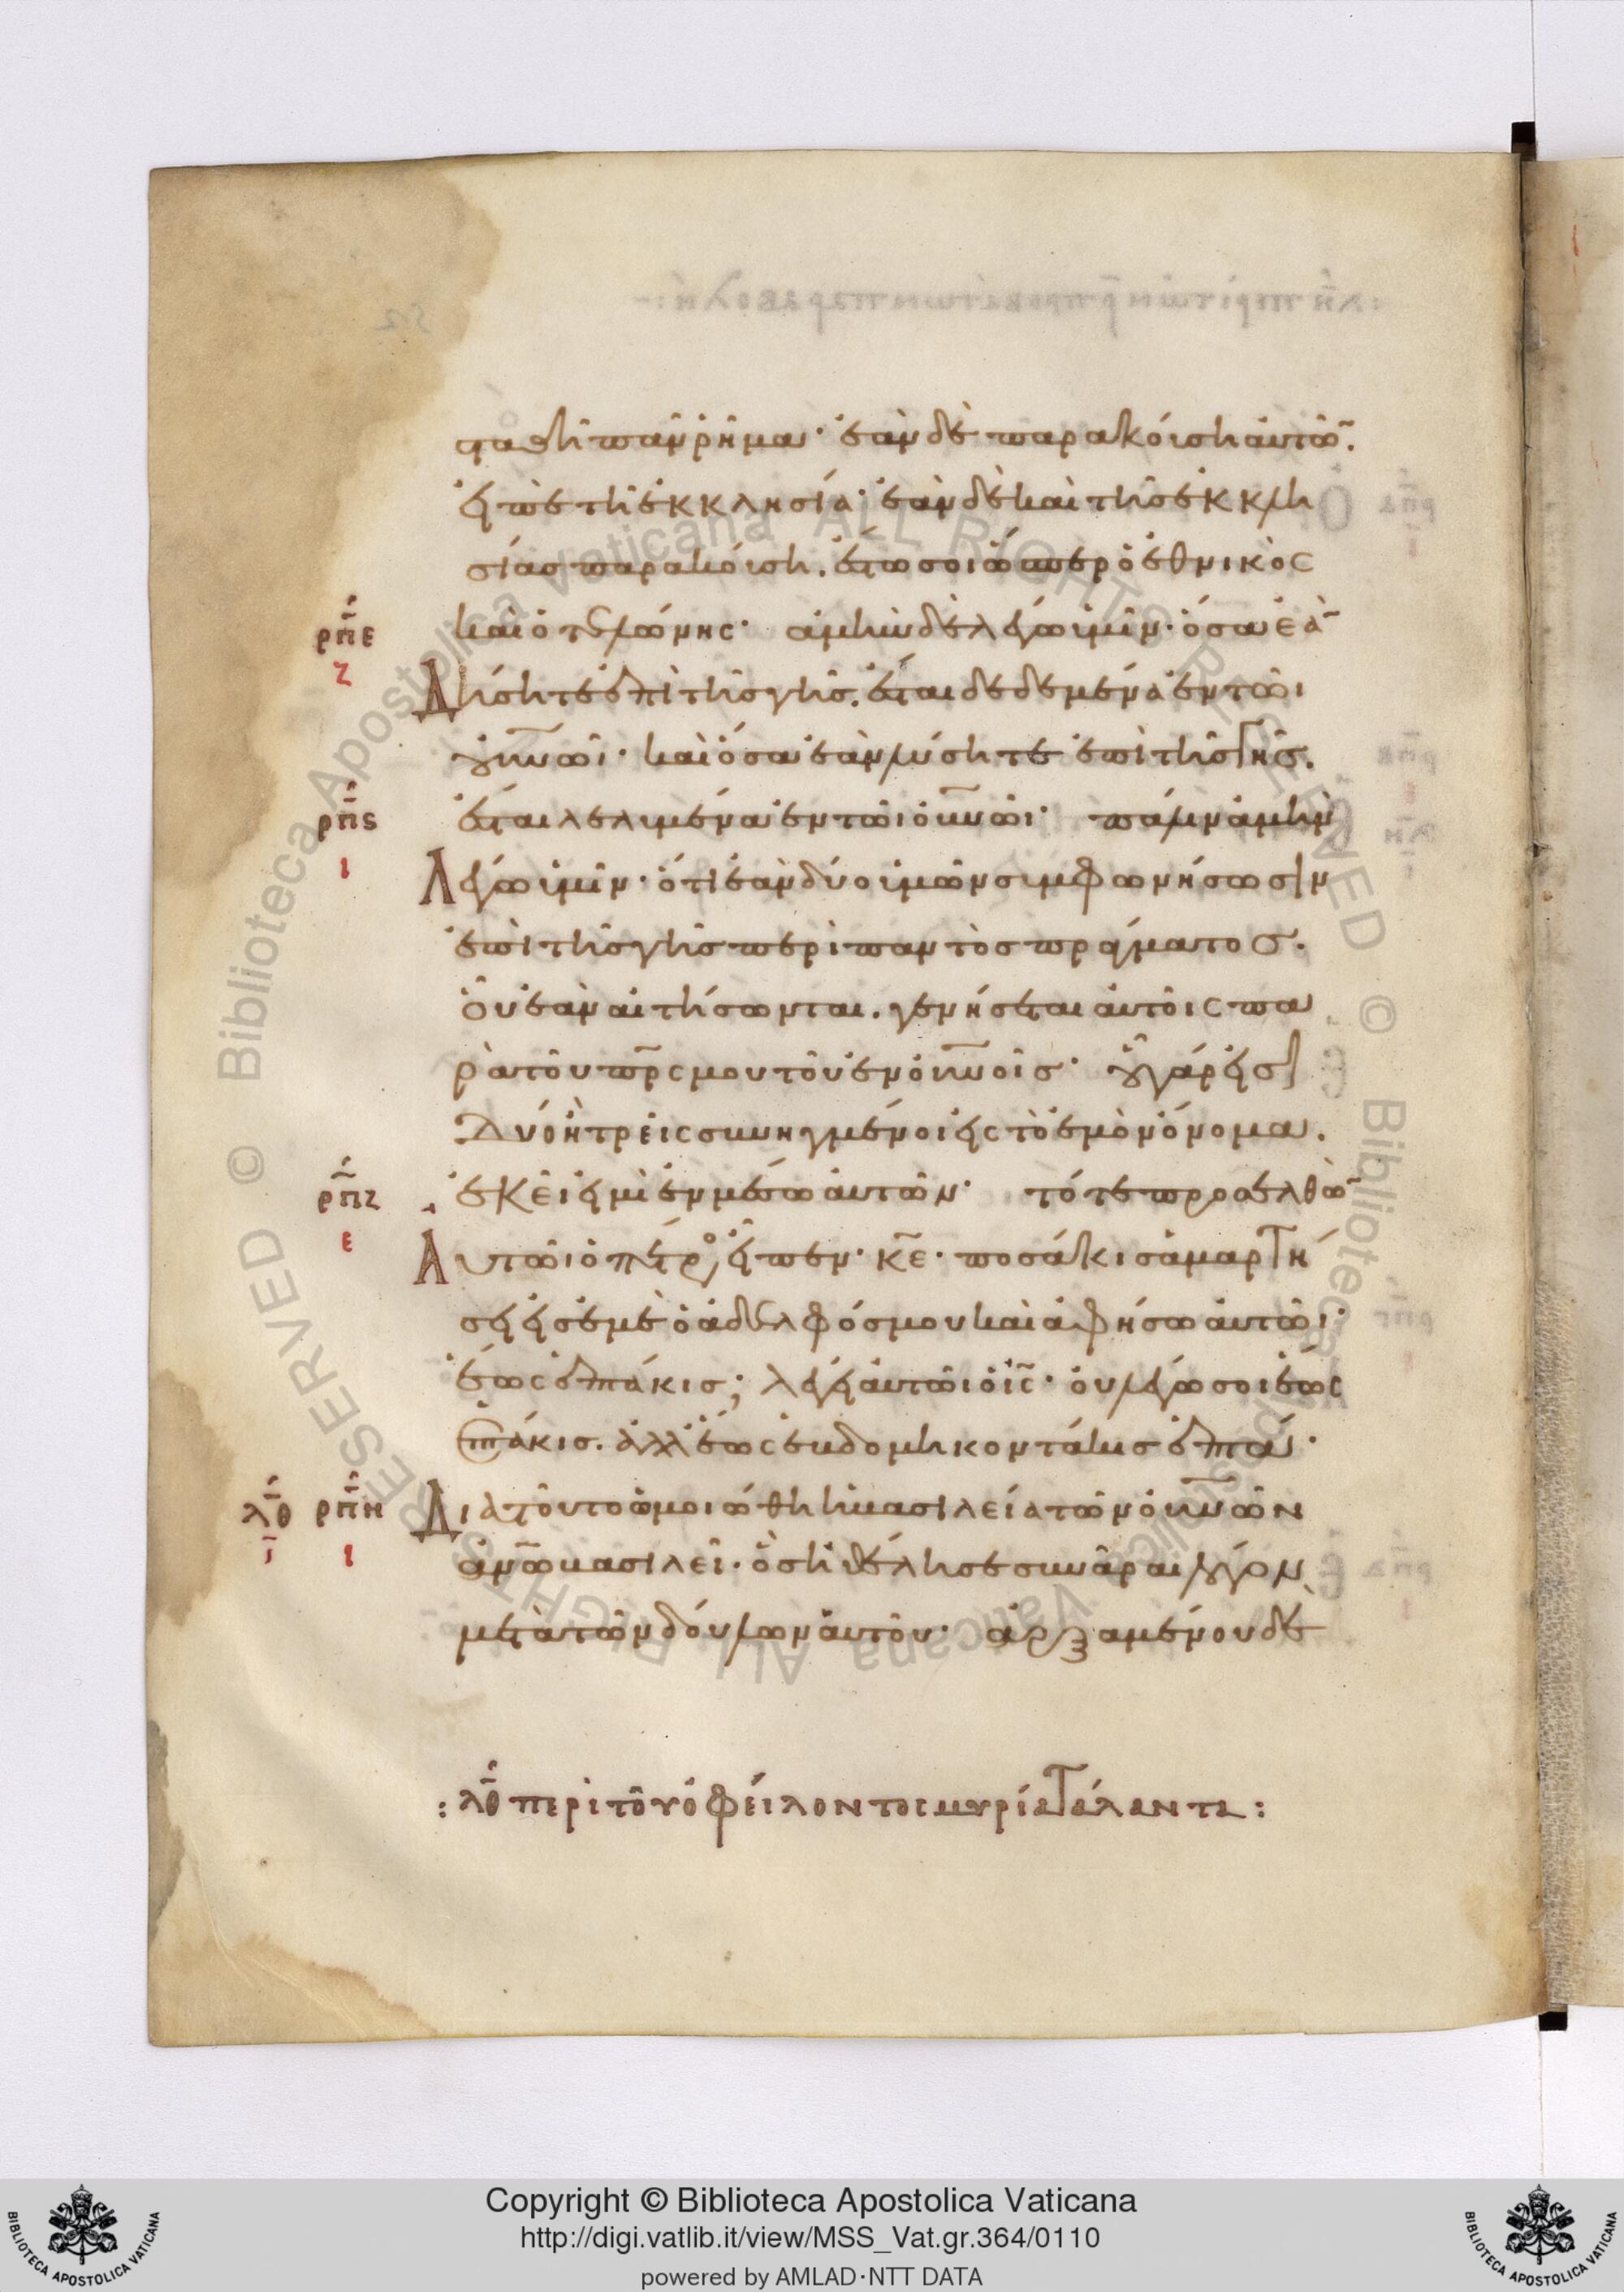 σταθῆ πᾶν ῥῆμα· ἐὰν δὲ παρακούση αὐτῶ̄.
εἰπὲ τῆ ἐκκλησία· ἐὰν δὲ καὶ τῆς ἐκκλη
σίας παρακούση. ἔστω σοι ὥσπερ ὁ ἐθνικὸς
ρπε καὶ ὁ τελώνης· ἀμὴν δὲ λέγω ὑμῖν· ὅσα ἐὰ̄
ζ Δήσητε ἐπὶ τῆς γῆς. ἔσται δεδεμένα ἐν τῶι
οὐνῶι· καὶ ὅσα ἐὰν λύσητε ἐπὶ τῆς γῆς.
ρπς ἔσται λελυμένα ἐν τῶι οὐνῶι· πάλιν ἀμὴν
ι Λέγω ὑμῖν· ὅτι ἐὰν δύο ὑμῶν συμφωνήσωσιν
ἐπὶ τῆς γῆς περὶ παντὸς πράγματος.
οὗ ἐὰν αἰτήσωνται. γενήσεται αὐτοῖς πα
ρὰ τοῦ πρς μου τοῦ ἐν οὐνοῖς· οὗ γάρ εἰσι
Δύο ἢ τρεῖς συνηγμένοι εἰς τὸ ἐμὸν ὄνομα.
ρπζ ἐκεῖ εἰμὶ ἐν μέσω αὐτῶν· τότε προσελθὼ̄
ε Αὐτῶι ὁ πέτρος εἶπεν· κε· ποσάκις ἁμαρτή
σει εἰς ἐμὲ ὁ ἀδελφός μου καὶ ἀφήσω αὐτῶι·
ἕως ἑπτάκις; λέγει αὐτῶι ὁ ις· οὐ λέγω σοι ἕως
ἑπτάκις. ἀλλ' ἕως ἑβδομηκοντάκις ἑπτά·
λθ ρπη Διὰ τοῦτο ὡμοιώθη ἡ βασιλεία τῶν οὐνῶν
ι ι ἀνω βασιλεῖ· ὃς ἠθέλησε συνᾶραι λόγον
μετὰ τῶν δούλων αὐτοῦ· ἀρξαμένου δὲ
: λθ περὶ τοῦ ὀφείλοντος μυρία τάλαντα :
Copyright © Biblioteca Apostolica Vaticana
http://digi.vatlib.it/view/MSS_Vat.gr.364/0110
powered by AMLAD·NTT DATA